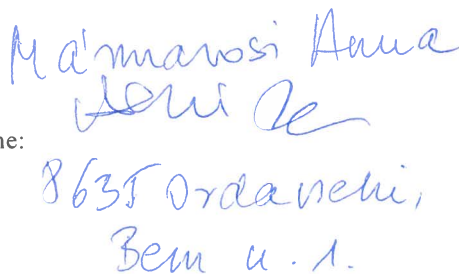 Mármarosi Anna
ne:
8635 Ordacsehi,
Bem u. 1.